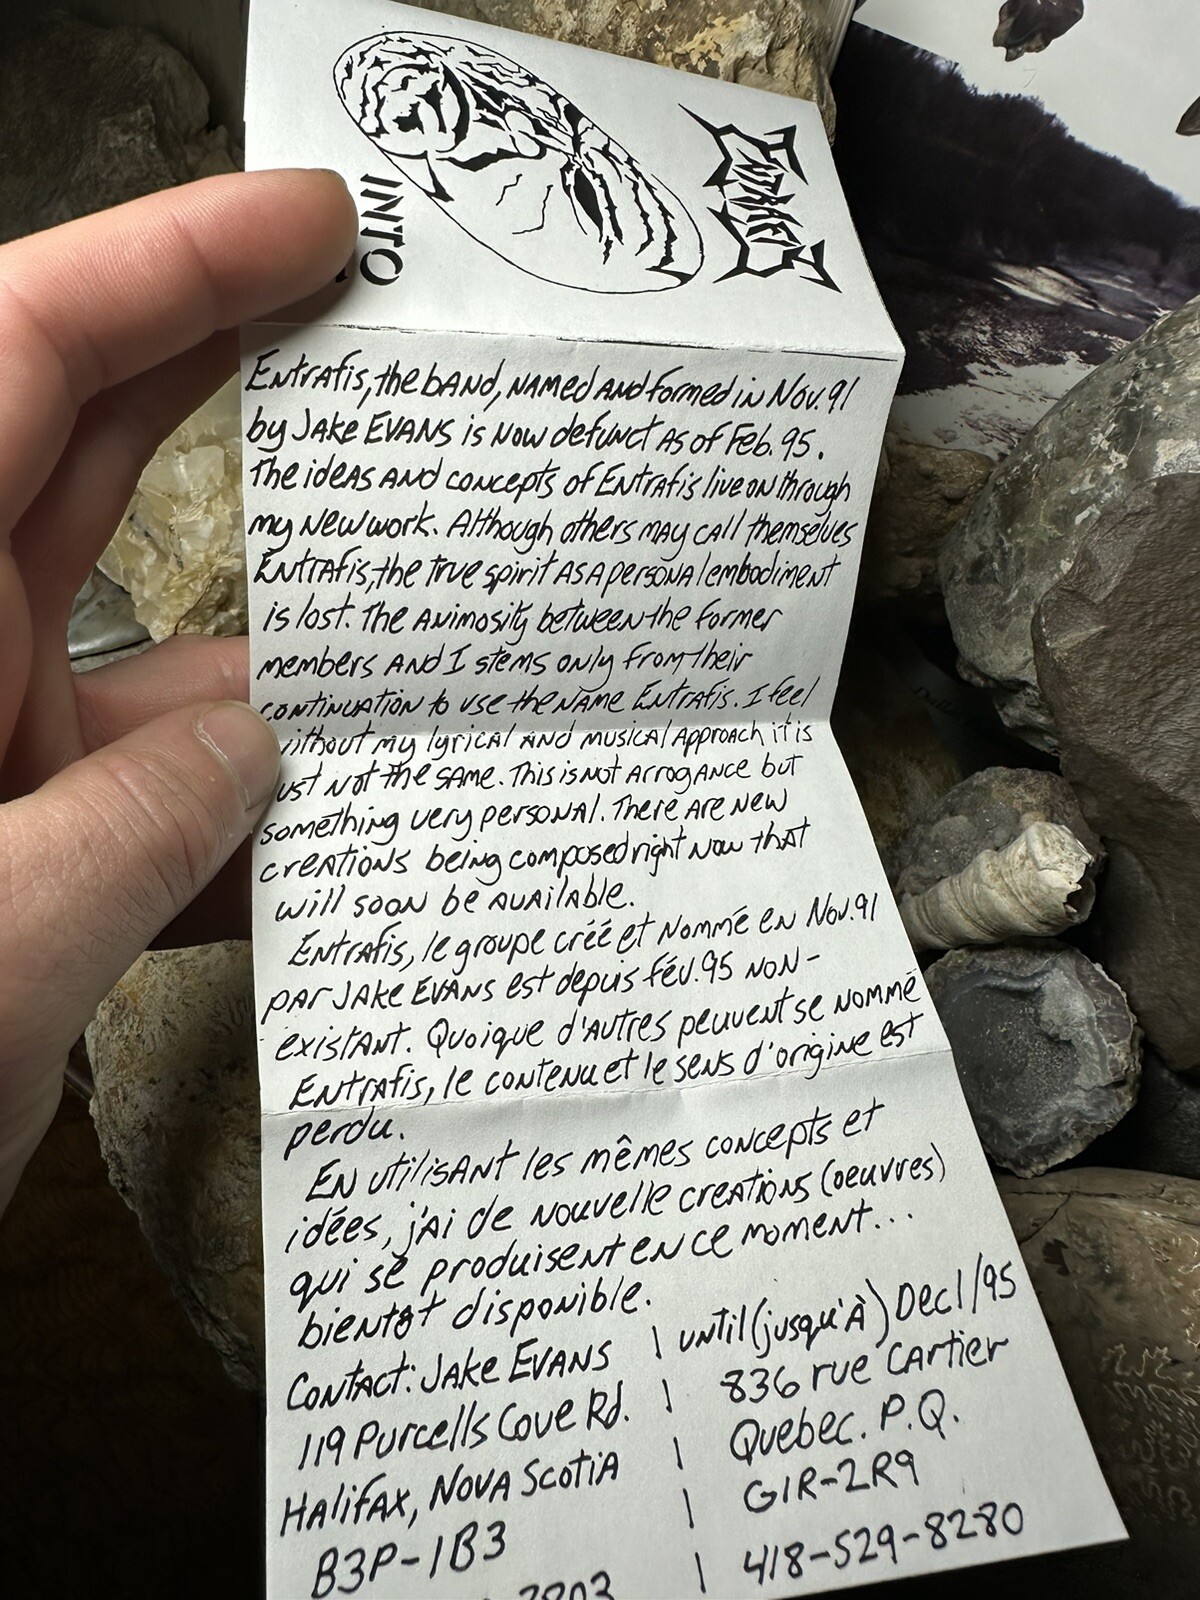 ENTRAFIS
INTO
Entrafis, the band, named and formed in Nov. 91
by Jake Evans is now defunct as of Feb. 95.
The ideas and concepts of Entrafis live on through
my new work. Although others may call themselves
Entrafis, the true spirit as a personal embodiment
is lost. The animosity between the former
members and I stems only from their
continuation to use the name Entrafis. I feel
without my lyrical and musical approach it is
just not the same. This is not arrogance but
something very personal. There are new
creations being composed right now that
will soon be available.
Entrafis, le groupe créé et nommé en Nov. 91
par Jake Evans est depuis fév. 95 non-
existant. Quoique d'autres peuvent se nommé
Entrafis, le contenu et le sens d'origine est
perdu.
En utilisant les mêmes concepts et
idées, j'ai de nouvelle creations (oeuvres)
qui se produisent en ce moment...
bientôt disponible.
Contact: Jake Evans | until (jusqu'à) Dec 1/95
119 Purcells Cove Rd. | 836 rue Cartier
Halifax, Nova Scotia | Quebec. P.Q.
B3P-1B3 | G1R-2R9
3803 | 418-529-8280